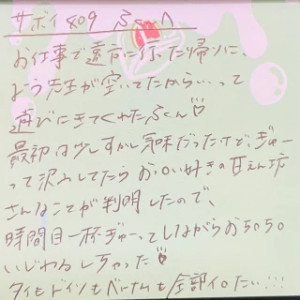 サボイ409 ふくんへ
お仕事で遠方に行った帰りに、
よう先生が空いてたから…って
遊びにきてくれたふくん♡
最初は少しすかし気味だったけど、ぎゅー
って沢山してたら お の 好きの甘えん坊
さんなことが判明したので、
時間目一杯ぎゅーってしながらおちちち
いじわるしちゃった♡
タイもドイツもベトナムも全部イロたい!!!